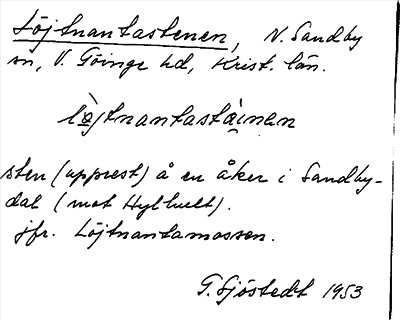 Löjtnantastenen, N. Sandby
sn, V. Göinge hd, Krist. län.
löjtnantastàinən
sten (upprest) å en åker i Sandby-
dal (mot Hylhult).
jfr. Löjtnantamossen.
G. Sjöstedt 1953